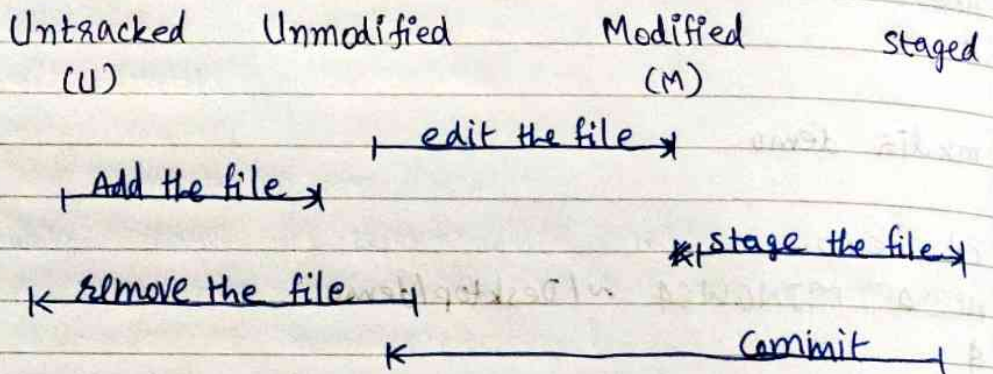 Untracked Unmodified Modified staged
(U) (M)
edit the file
Add the file
stage the file
remove the file
Commit